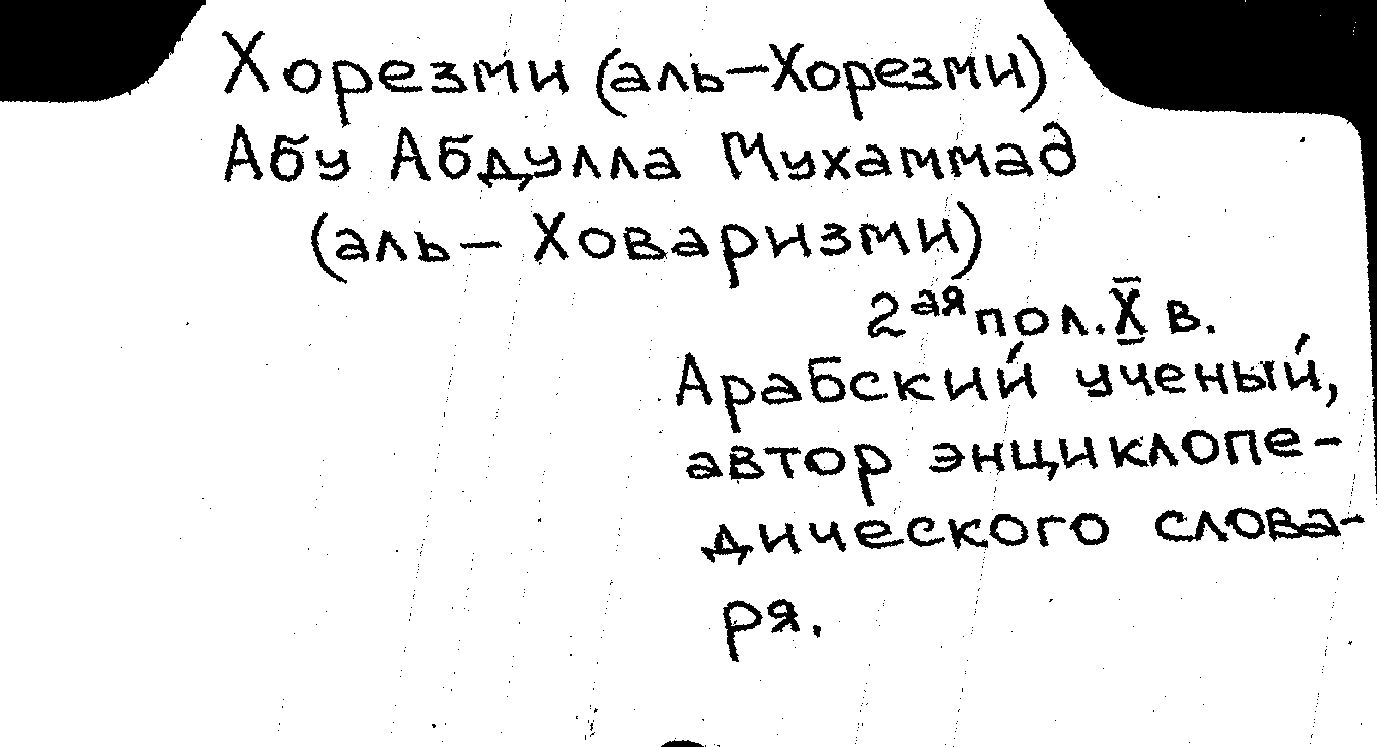 Хорезми (аль-Хорезми)
Абу Абдулла Мухаммад
(аль-Ховаризми)
2ая пол. X в.
Арабский ученый,
автор энциклопе-
дического слова-
ря.